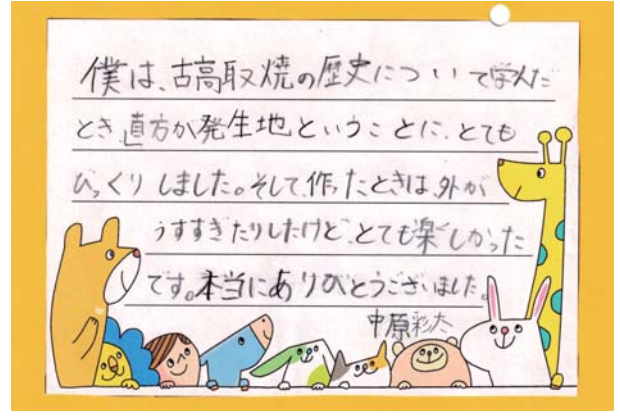 僕は、古高取焼の歴史について学んだ
とき、直方が発生地ということに、とても
びっくりしました。そして、作ったときは、外が
うすすぎたりしたけど、とても楽しかった
です。本当にありがとうございました。
中原彩太